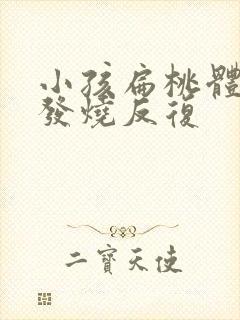 小孩扁桃體
發燒反復
二寶天使